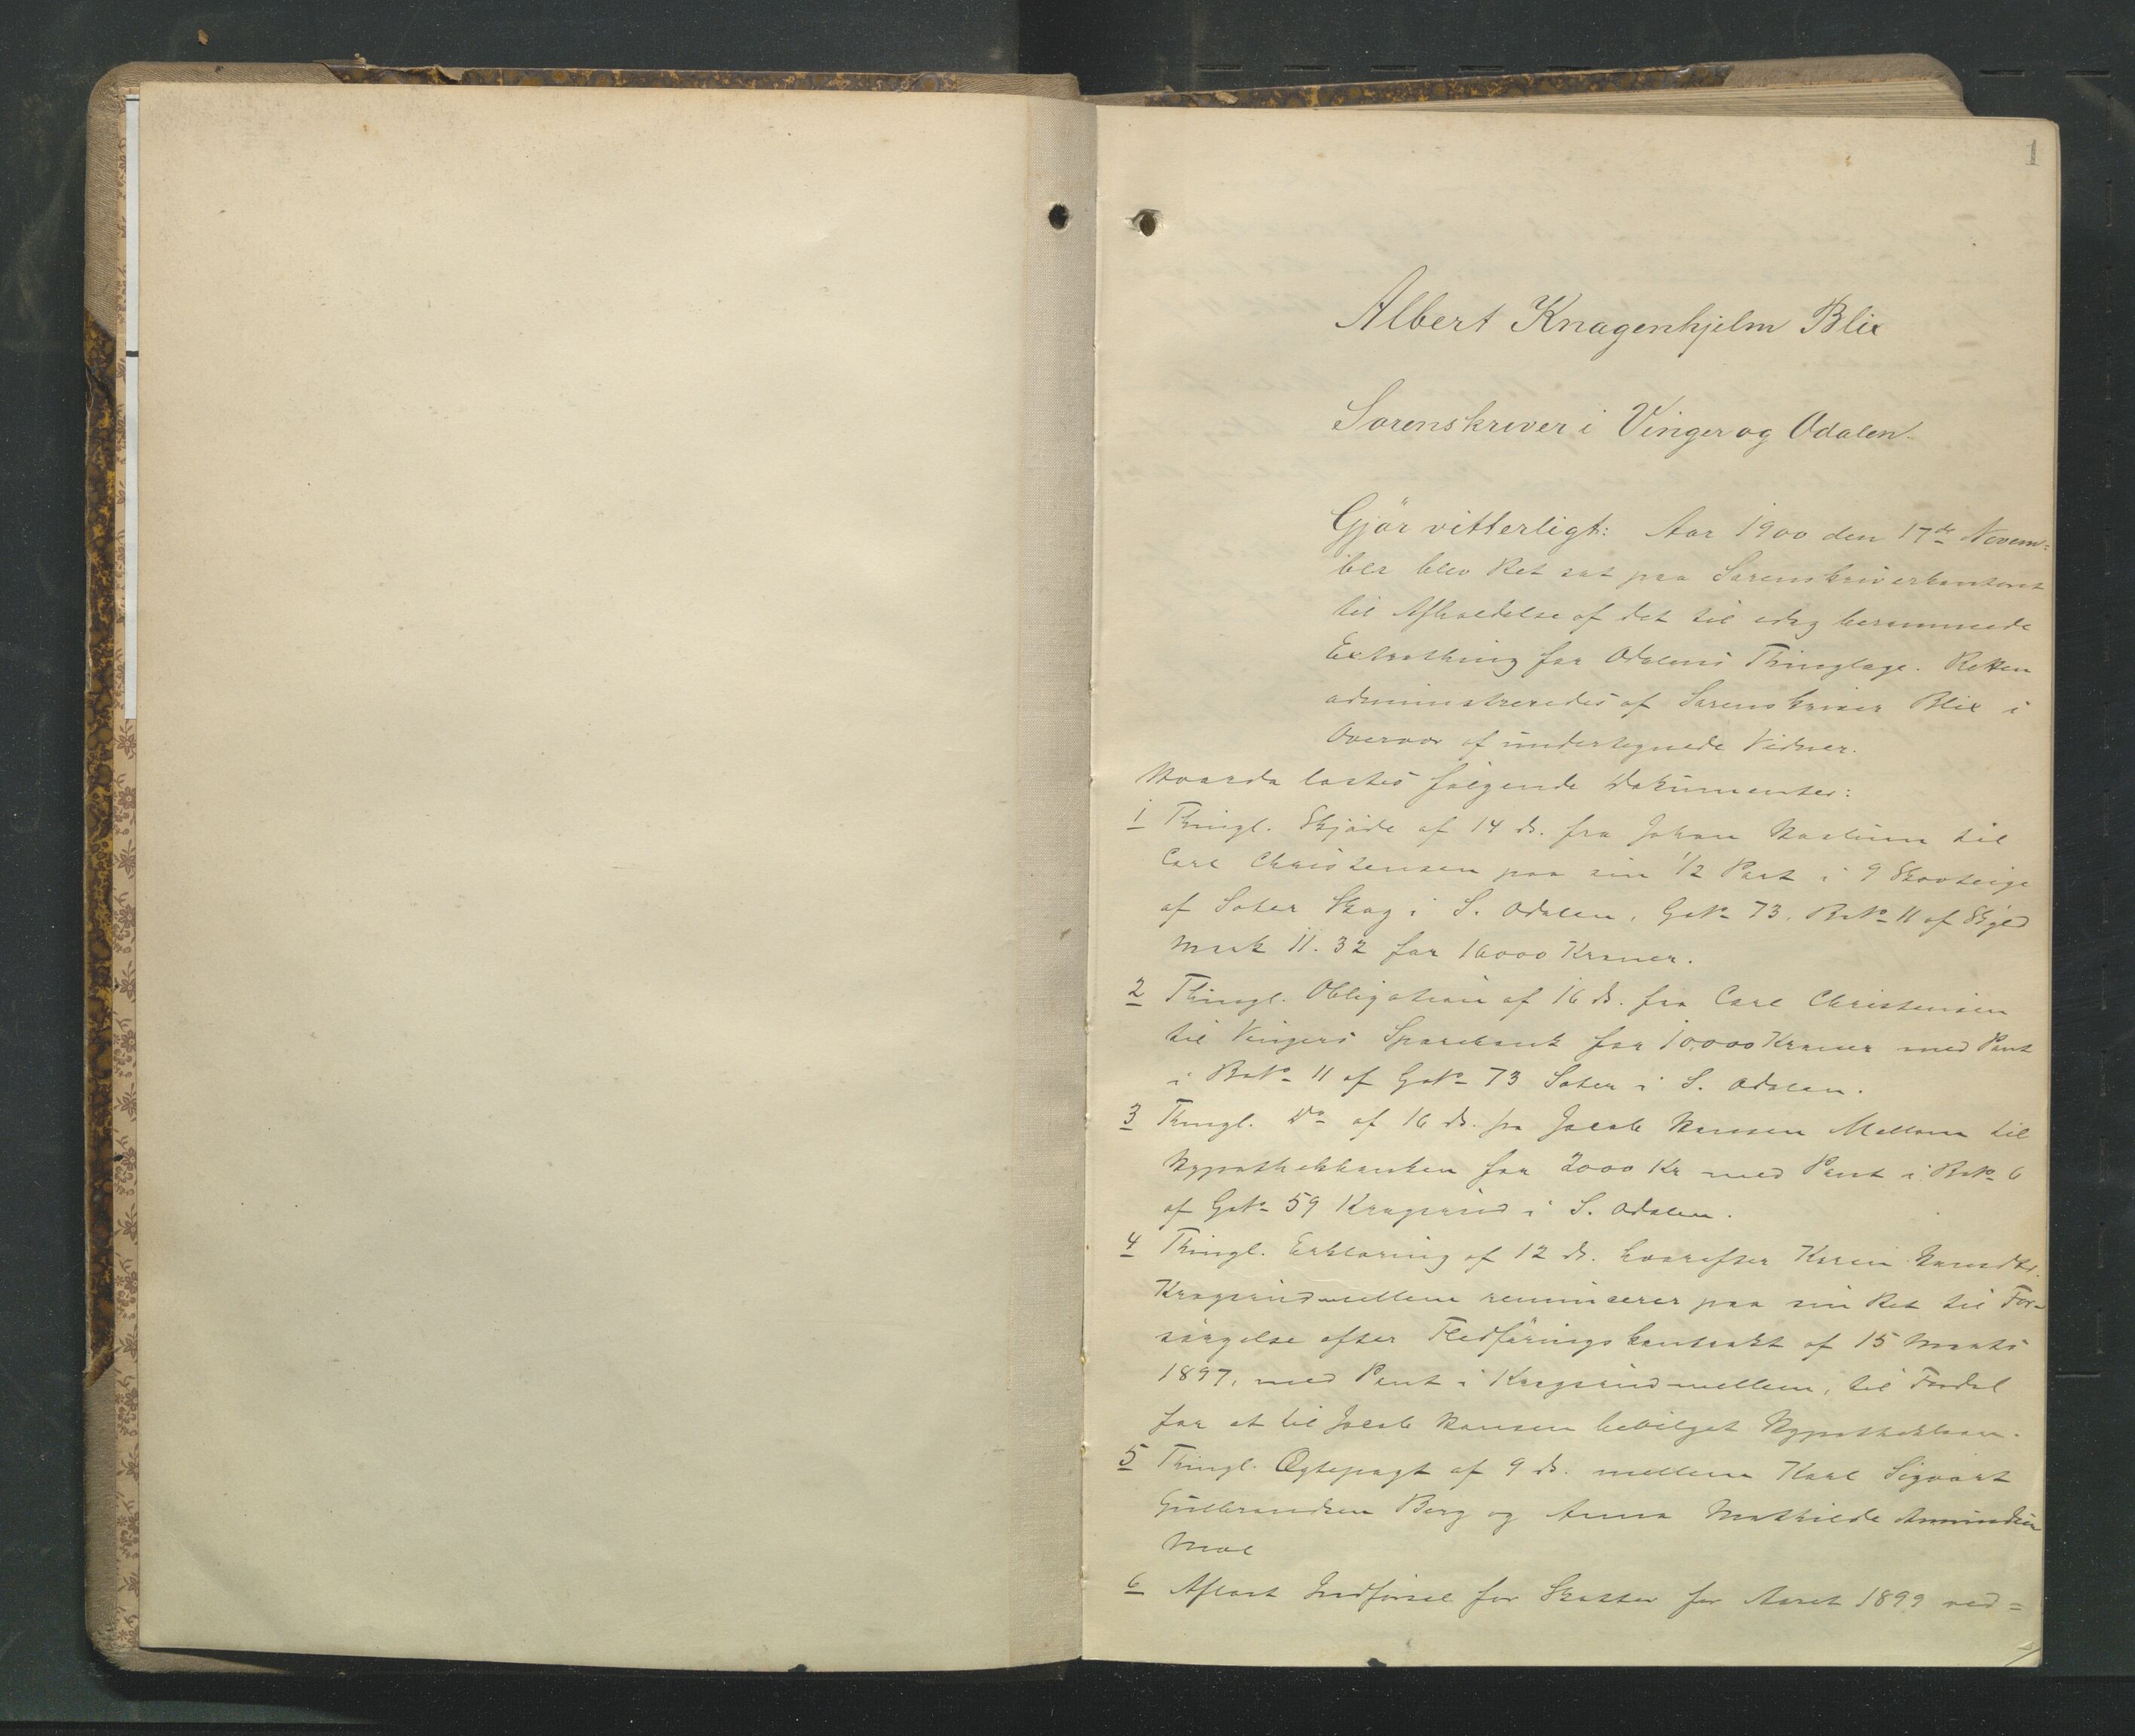 1
Albert Knagenhjelm Blix
Sorenskriver i Vinger og Odalen.
Gjör vitterligt: Aar 1900 den 17de Novem=
ber blev Ret sat paa Sorenskriverkontoret
til Afholdelse af det til idag berammede
Extrathing for Odalens Thinglage. Retten
administreredes af Sorenskriver Blix i
Overvær af undertegnede Vidner.
Hvorda læstes følgende Dokumenter:
1 Thingl. Skjöde af 14 ds. fra Johan til
Carl Christensen paa sin 1/2 Part i 9 Skovteige
af Sater Skog i S. Odalen, GNo 73. BrNo 11 af Skyld
Mark 11.32 for 16000 Kroner.
2 Thingl. Obligation af 16 ds. fra Carl Christensen
til Vingers Sparebank for 10.000 Kroner med Pant
i BrNo 11 af GNo 73 Sater i S. Odalen.
3 Thingl. Do af 16 ds. fra Jacob Hansen Mellem til
Hypothekbanken for 2000 Kr med Pant i BrNo 6
af GNo 59 Kragerud i S. Odalen.
4 Thingl. Erklæring af 12 ds. hvorefter Karen Hansdtr.
Kragerudmellem renuncerer paa sin Ret til For=
sörgelse efter Fledföringskontrakt af 15 Marts
1897, med Pant i Kragerudmellem, til Fordel
for et til Jacob Hansen bevilget Hypotheklaan.
5 Thingl. Ægtepagt af 9 ds. mellem Karl Sigvart
Gulbrandsen Berg og Anna Mathilde Amundsen
Moe
6 Aflæst Indförsel for Skatter for Aaret 1899 ved=